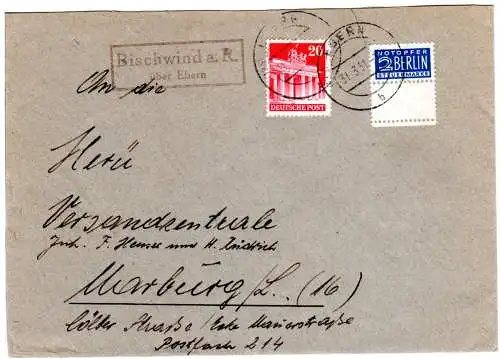 Bischwind a. R.
über Ebern
EBERN
EBERN
31.3.51
b
20
DEUTSCHE POST
NOTOPFER
2 BERLIN
STEUERMARKE
An die
Versandzentrale
Inh. F. und H.
Marburg/L. (16)
Cölber Straße/Ecke Mauerstraße
Postfach 214